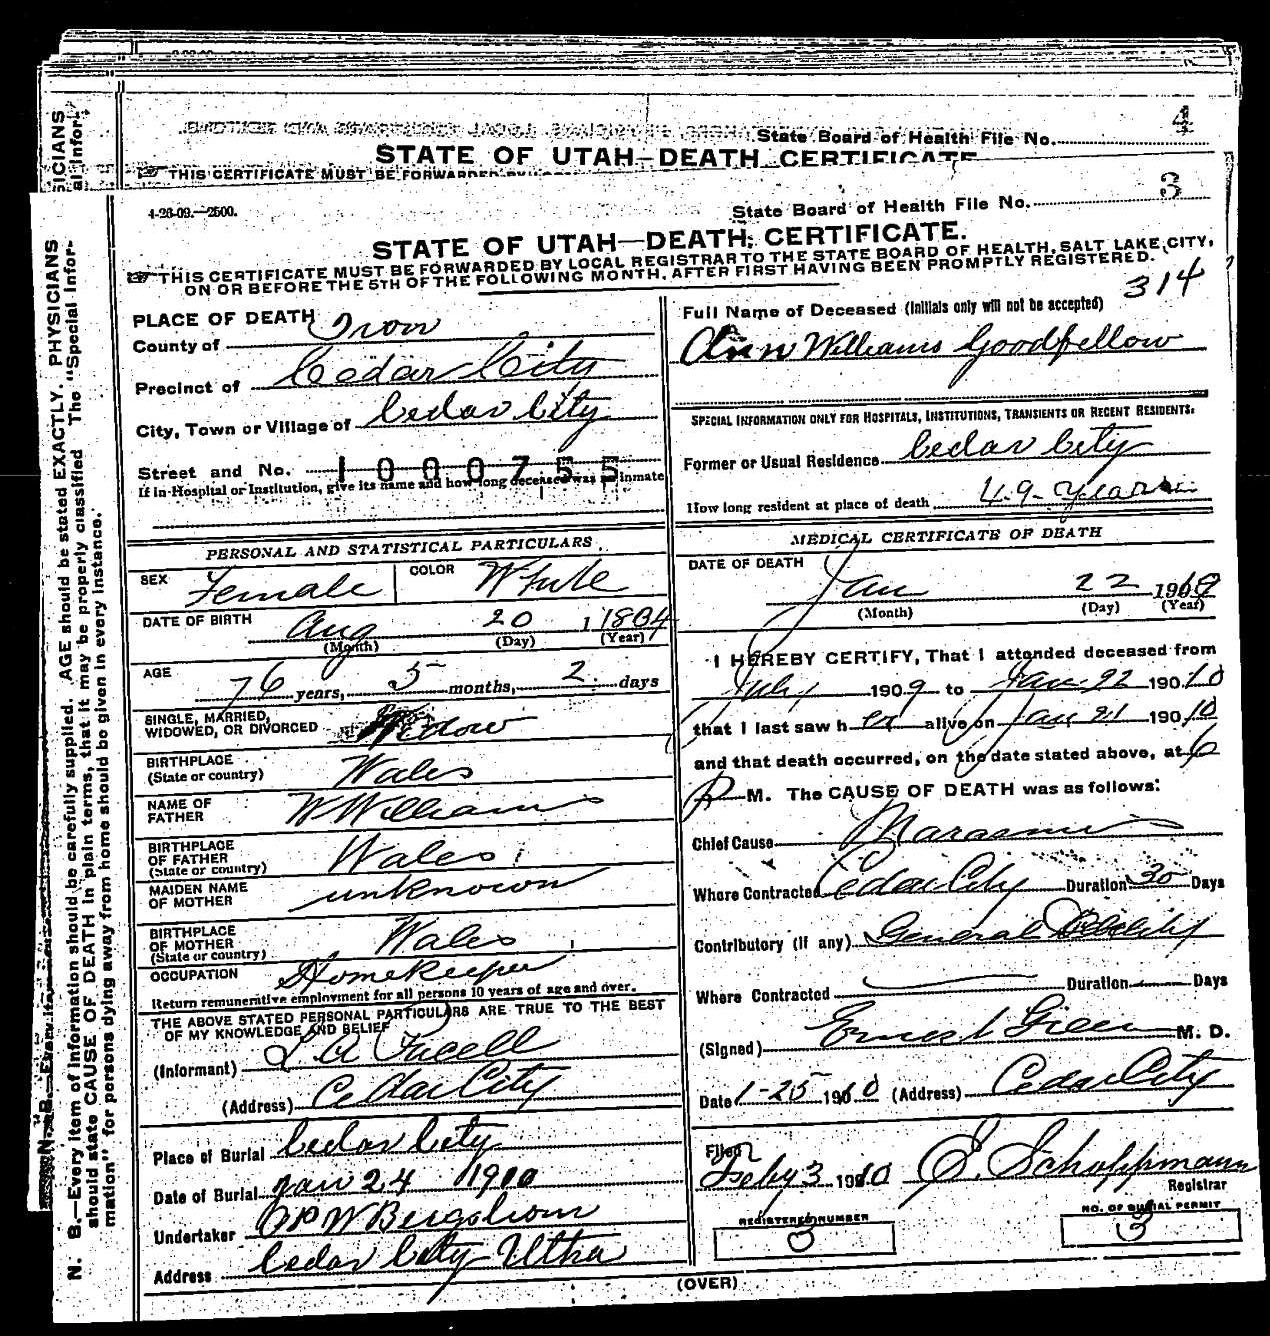 State Board of Health File No. 4
STATE OF UTAH—DEATH CERTIFICATE
THIS CERTIFICATE MUST BE FORWARDED
4-26-09.—2500.
State Board of Health File No. 3
STATE OF UTAH—DEATH CERTIFICATE.
THIS CERTIFICATE MUST BE FORWARDED BY LOCAL REGISTRAR TO THE STATE BOARD OF HEALTH, SALT LAKE CITY,
ON OR BEFORE THE 5TH OF THE FOLLOWING MONTH, AFTER FIRST HAVING BEEN PROMPTLY REGISTERED.
314
PLACE OF DEATH
County of Iron
Precinct of Cedar City
City, Town or Village of Cedar City
Street and No. 1000755
If in Hospital or Institution, give its name and how long deceased was an inmate
PERSONAL AND STATISTICAL PARTICULARS.
SEX Female COLOR White
DATE OF BIRTH Aug 20
(Month) (Day) (Year)
AGE 76 years, 5 months, 2 days
SINGLE, MARRIED,
WIDOWED, OR DIVORCED Widow
BIRTHPLACE
(State or country) Wales
NAME OF
FATHER W Williams
BIRTHPLACE
OF FATHER
(State or country) Wales
MAIDEN NAME
OF MOTHER unknown
BIRTHPLACE
OF MOTHER
(State or country) Wales
OCCUPATION Homekeeper
Return remunerative employment for all persons 10 years of age and over.
THE ABOVE STATED PERSONAL PARTICULARS ARE TRUE TO THE BEST
OF MY KNOWLEDGE AND BELIEF
(Informant)
(Address) Cedar City
Place of Burial Cedar City
Date of Burial Jan 24 1910
Undertaker
Address Cedar City Utha
Full Name of Deceased (Initials only will not be accepted)
Ann Williams Goodfellow
SPECIAL INFORMATION ONLY FOR HOSPITALS, INSTITUTIONS, TRANSIENTS OR RECENT RESIDENTS.
Former or Usual Residence Cedar City
How long resident at place of death 49 years
MEDICAL CERTIFICATE OF DEATH
DATE OF DEATH
Jan 22 1910
(Month) (Day) (Year)
I HEREBY CERTIFY, That I attended deceased from
July 1909 to Jan 22 19010
that I last saw her alive on Jan 21 19010
and that death occurred, on the date stated above, at 6
P M. The CAUSE OF DEATH was as follows:
Chief Cause Marasmus
Where Contracted Cedar City Duration 30 Days
Contributory (if any) General Debility
Where Contracted Duration Days
(Signed) Ernest Green M. D.
Date 1-25 1910 (Address) Cedar City
Filed
Feby 3 1910 E. Schoppmann
Registrar
REGISTERED NUMBER
3
NO. OF BURIAL PERMIT
3
(OVER)
N. B.—Every item of information should be carefully supplied. AGE should be stated EXACTLY. PHYSICIANS
should state CAUSE OF DEATH in plain terms, that it may be properly classified. The "Special Infor-
mation" for persons dying away from home should be given in every instance.